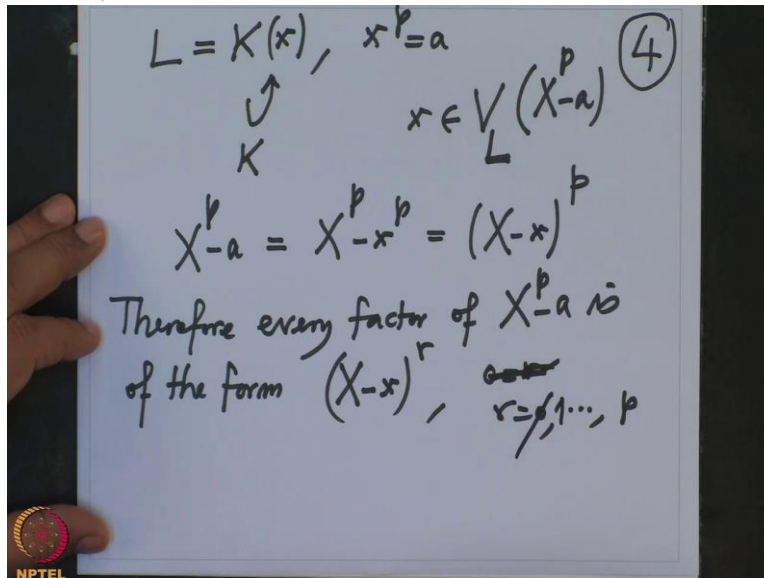 L = K(x), x^p = a
④
K
x ∈ V_L (X^p - a)
X^p - a = X^p - x^p = (X - x)^p
Therefore every factor of X^p - a is
of the form (X - x)^r,
r = 1 ..., p
NPTEL